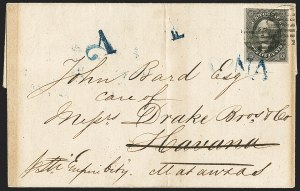 2
F
NA
John Bard Esq
care of
Messrs Drake Bros & Co
Havana
p Str Empire City. Matanzas